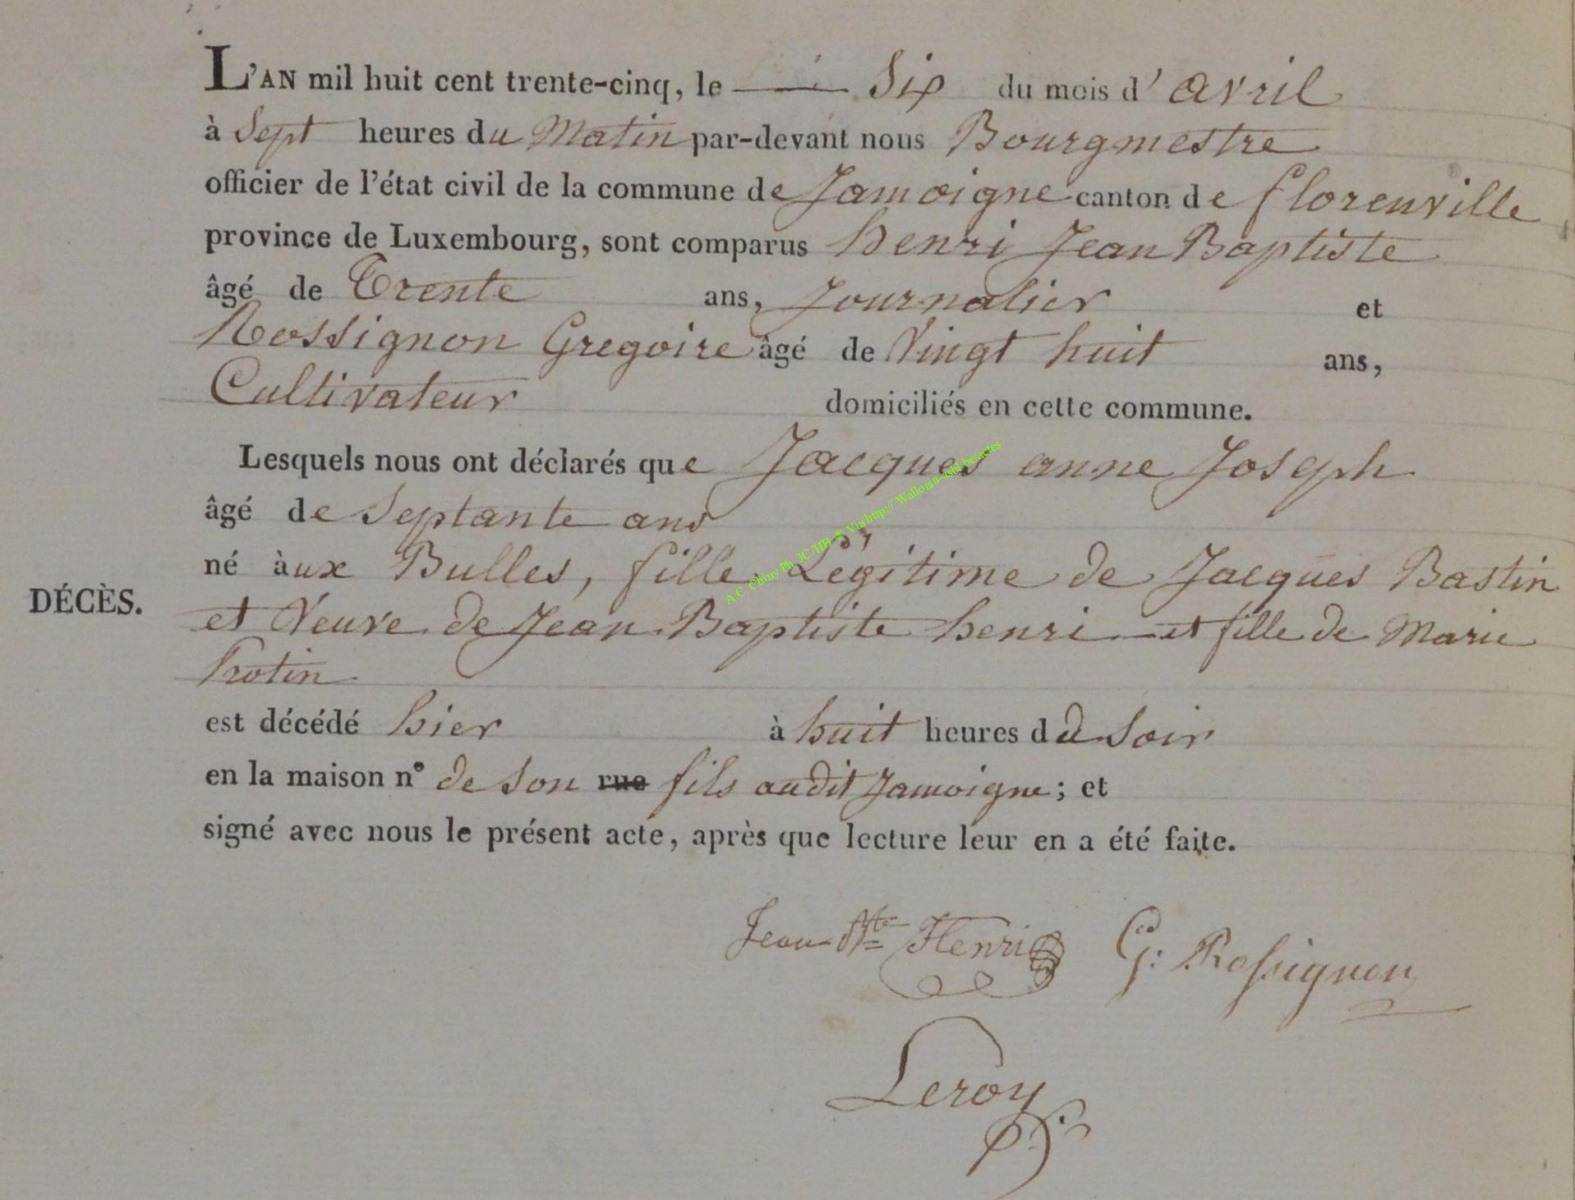 L'AN mil huit cent trente-cinq, le Six du mois d'avril
à Sept heures du Matin par-devant nous Bourgmestre
officier de l'état civil de la commune de Jamoigne canton de florenville
province de Luxembourg, sont comparus henri Jean Baptiste
âgé de Trente ans, Journalier et
Rossignon Gregoire âgé de Vingt huit ans,
Cultivateur domiciliés en cette commune.
Lesquels nous ont déclarés que Jacques anne Joseph
âgé de Septante ans
né àux Bulles, fille Légitime de Jacques Bastin
DÉCÈS.
et Veuve de Jean Baptiste henri et fille de Marie
Protin
est décédé hier à huit heures du Soir
en la maison n° de Son rue fils audit Jamoigne; et
signé avec nous le présent acte, après que lecture leur en a été faite.
Jean Bte Henri G: Rossignon
Leroy